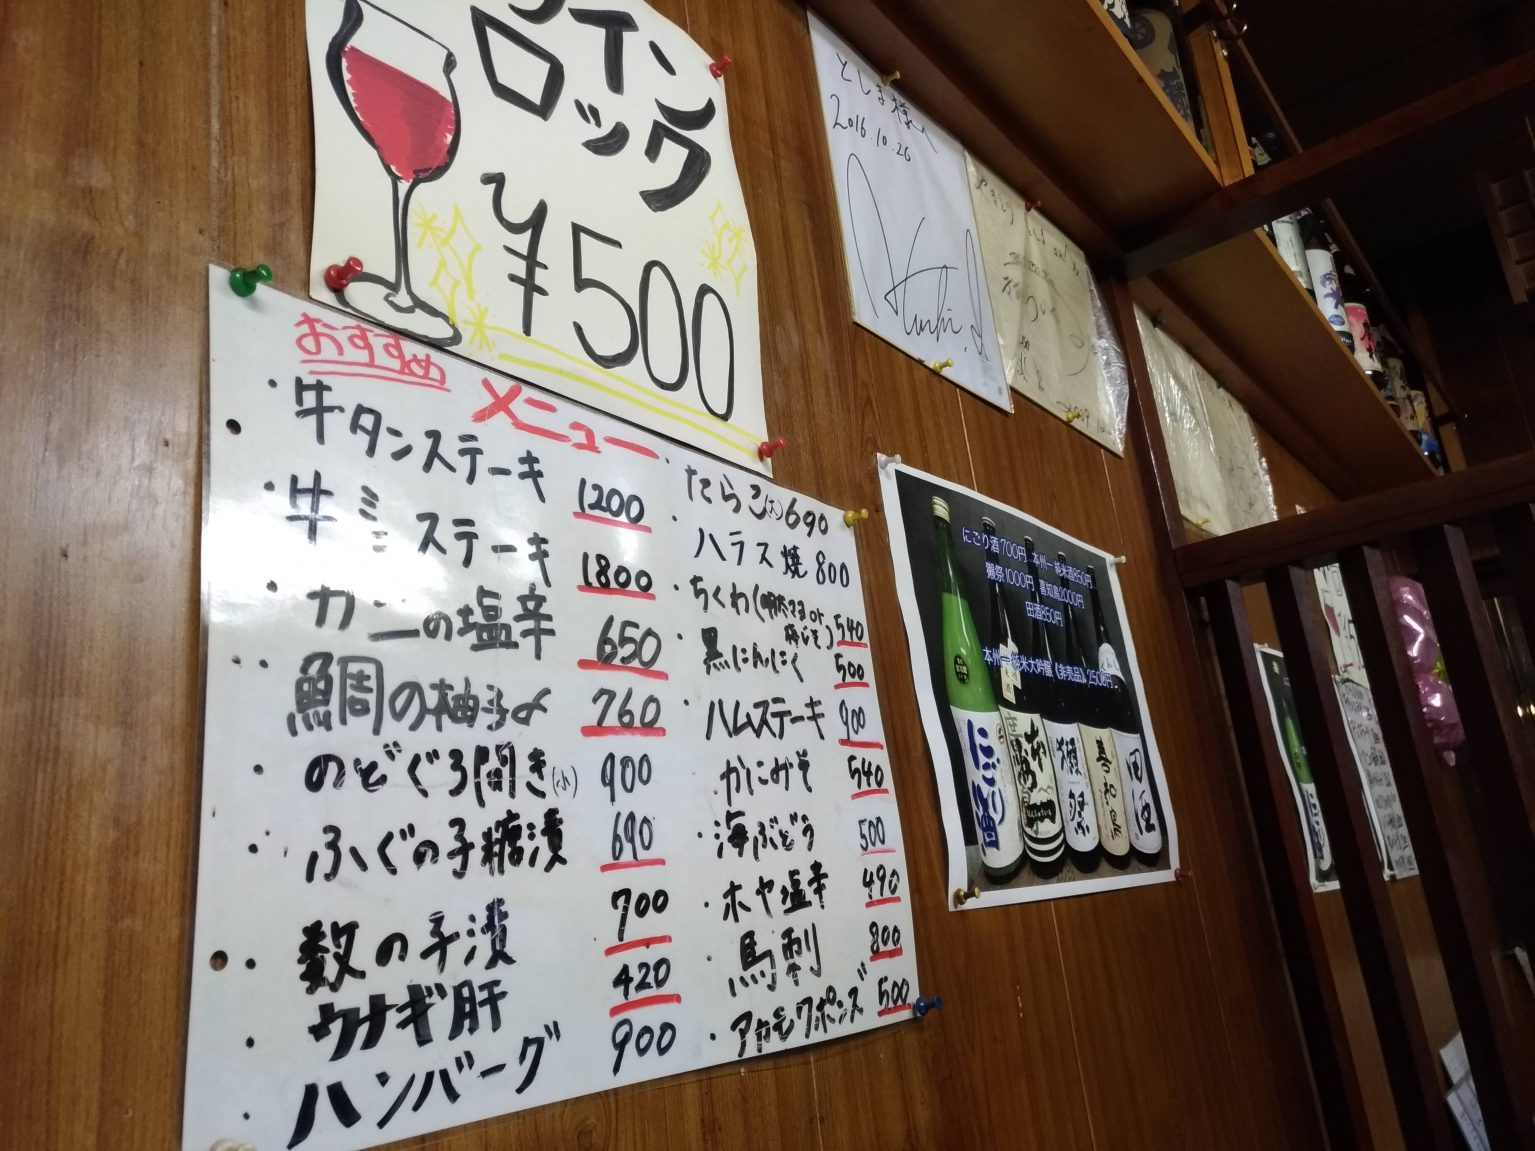 ワイン
ロック
¥500
おすすめ
メニュー
・牛タンステーキ 1200
・牛ミニステーキ 1800
カニの塩辛 650
鯛の柚子〆 760
・のどぐろ開き(小) 900
・ふぐの子糖漬 690
・数の子漬 700
・ウナギ肝 420
・ハンバーグ 900
・たらこ(大) 690
・ハラス焼 800
・ちくわ(明太マヨor
梅じそ) 540
・黒にんにく 500
・ハムステーキ 900
・かにみそ 540
・海ぶどう 500
・ホヤ塩辛 490
・馬刺 800
・アカモクポンズ 500
としま様へ
2016.10.26
にごり酒700円 本州一 純米酒850円
獺祭1000円 喜知鳥2000円
田酒850円
本州一 純米大吟醸《非売品》2500円
にごり酒
本州一
獺祭
田酒